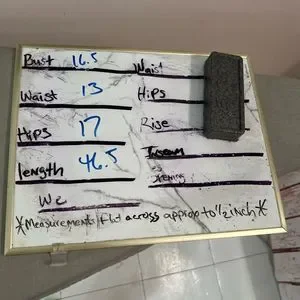 Bust 16.5
Waist 13
Hips 17
length 46.5
We
Waist
Hips
Rise
Inseam
*Measurements flat across approx to 1/2 inch*